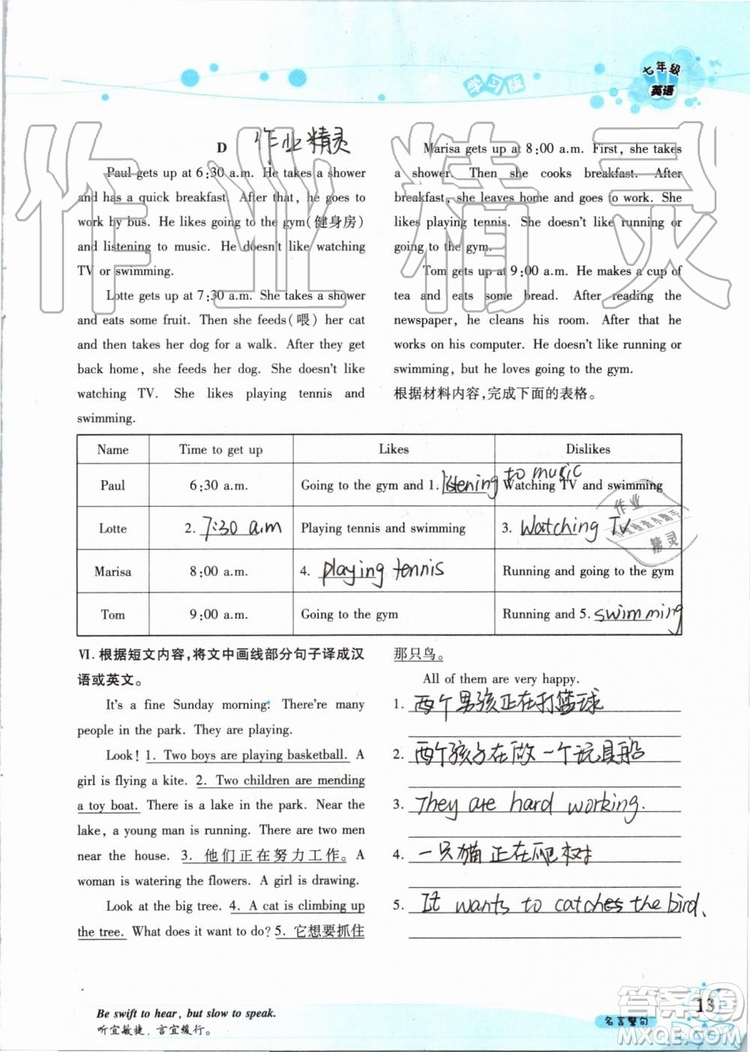 七年级
英语
学习版
D 作业精灵
Paul gets up at 6:30 a.m. He takes a shower
and has a quick breakfast. After that, he goes to
work by bus. He likes going to the gym(健身房)
and listening to music. He doesn't like watching
TV or swimming.
Lotte gets up at 7:30 a.m. She takes a shower
and eats some fruit. Then she feeds(喂) her cat
and takes her dog for a walk. After they get
back home, she plays with them. She doesn't like
watching TV. She likes playing tennis and
swimming.
Marisa gets up at 8:00 a.m. First, she takes
a shower. Then she cooks breakfast. After
breakfast, she leaves home and goes to work. She
likes playing tennis. She doesn't like running or
going to the gym.
Tom gets up at 9:00 a.m. He makes a cup of
tea and eats some bread. After reading the
newspaper, he cleans his room. After that, he
works on his computer. He doesn't like running or
swimming, but he loves going to the gym.
根据材料内容,完成下面的表格。
Name Time to get up Likes Dislikes
Paul 6:30 a.m. Going to the gym and 1. listening to music Watching TV and swimming
Lotte 2. 7:30 a.m Playing tennis and swimming 3. Watching TV
Marisa 8:00 a.m. 4. playing tennis Running and going to the gym
Tom 9:00 a.m. Going to the gym Running and 5. swimming
Ⅵ. 根据短文内容,将文中画线部分句子译成汉
语或英文。
It's a fine Sunday morning. There're many
people in the park. They are playing.
Look! 1. Two boys are playing basketball. A
girl is flying a kite. 2. Two children are mending
a toy boat. There is a lake in the park. Near the
lake, a young man is running. There are two men
near the house. 3. 他们正在努力工作。A
woman is watering the flowers. A girl is drawing.
Look at the big tree. 4. A cat is climbing up
the tree. What does it want to do? 5. 它想要抓住
那只鸟。
All of them are very happy.
1. 两个男孩正在打篮球
2. 两个孩子在做一个玩具船
3. They are hard working.
4. 一只猫正在爬树
5. It wants to catches the bird.
Be swift to hear, but slow to speak.
听宜敏捷,言宜缓行。
名言警句
13
作业精灵
答案圈